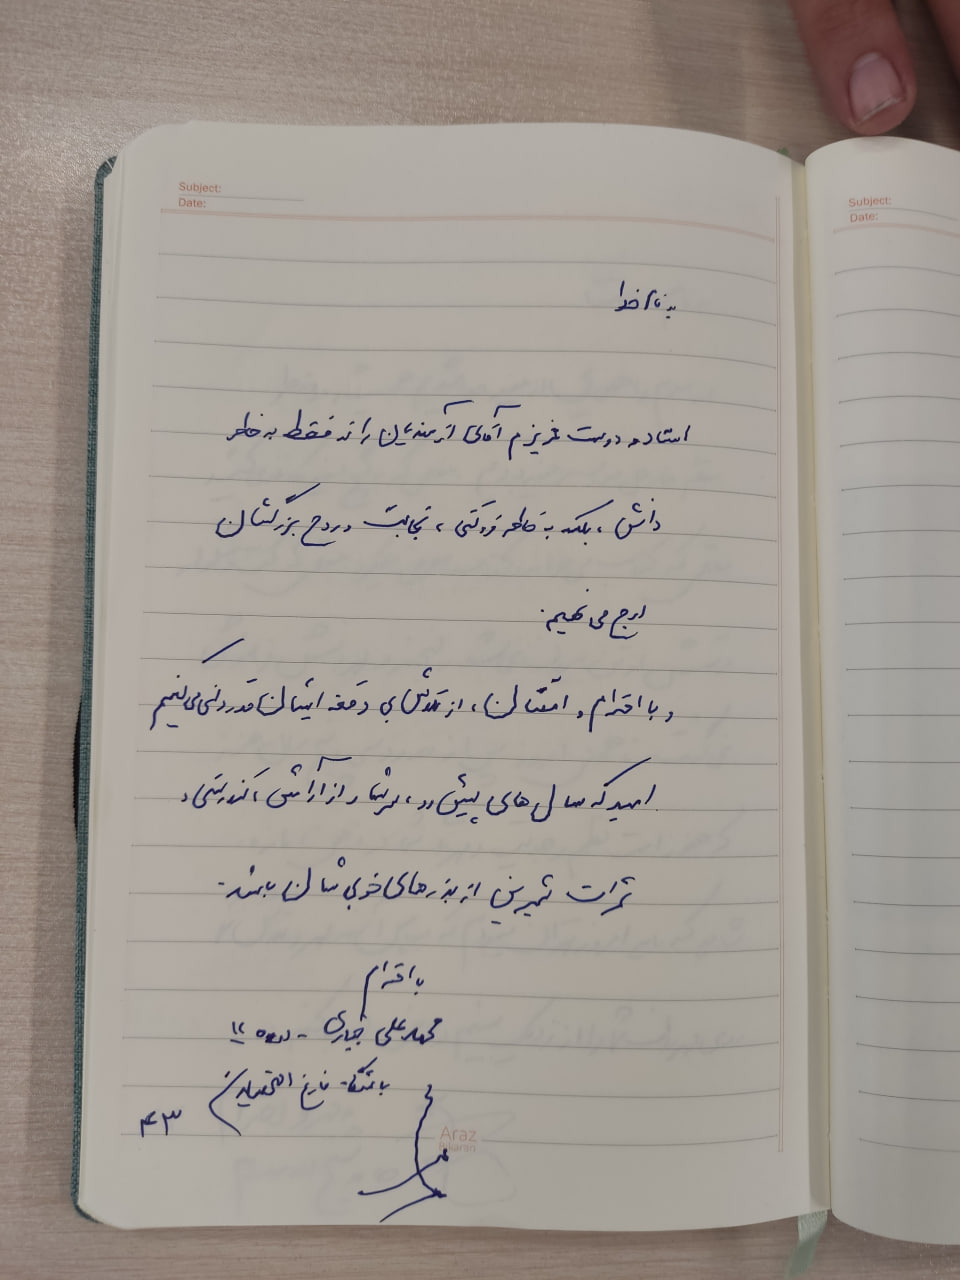 Subject:
Date:
به نام خدا
استاد و دوست عزیزم آقای را نه فقط به خاطر
دانش، بلکه به خاطر فروتنی، نجابت و روح بزرگشان
ارج می نهیم.
و با احترام و امتنان، از تلاش‌های ایشان قدردانی می‌کنیم
امید که سال‌های پیش رو، سرشار از آرامش، تندرستی و
ثمرات شیرین از بذرهای خوبی شان باشند.
با احترام
محمدعلی - دوره ۱۲
باشگاه فارغ التحصیلان
۴۳
Araz
Bikaran
Subject:
Date: